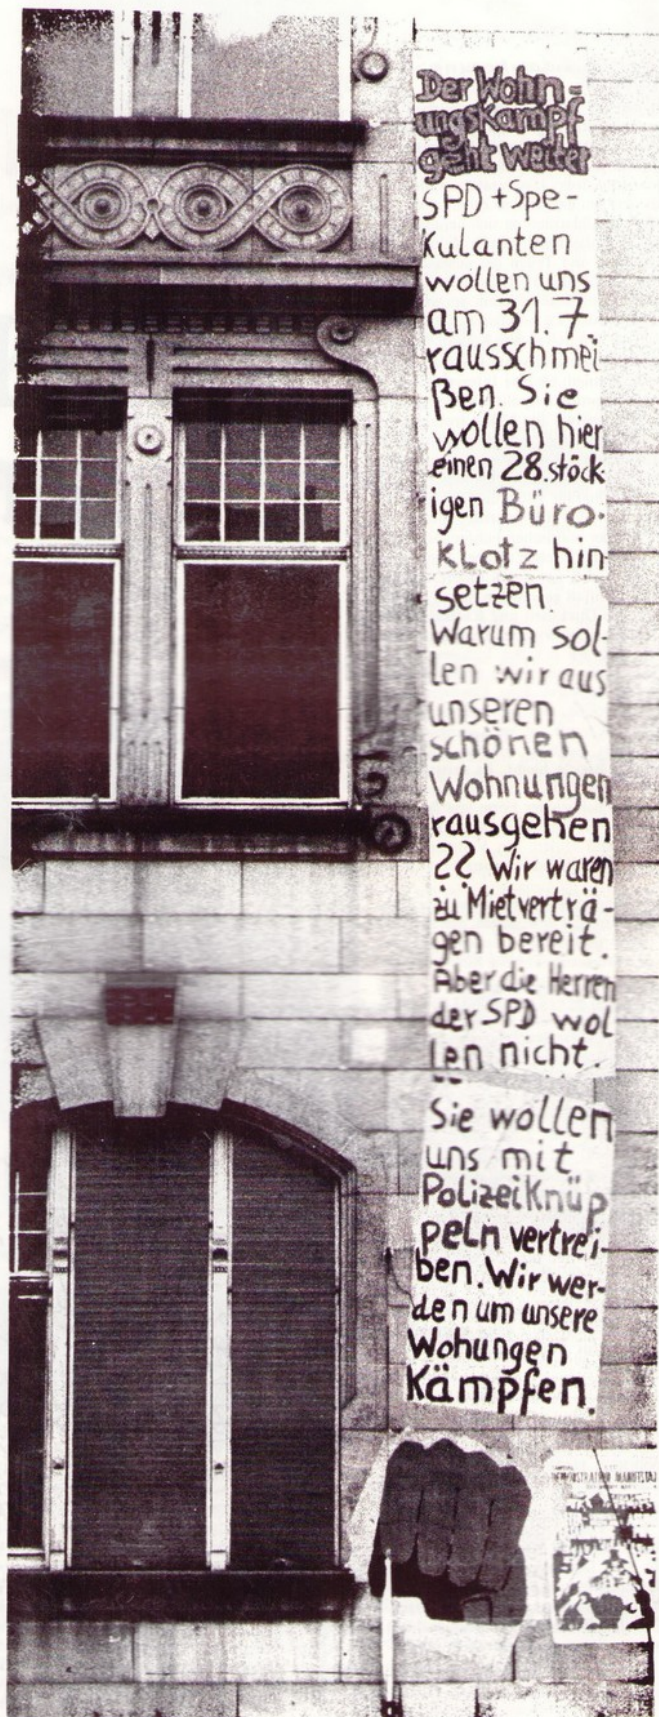 Der Wohn=
ungskampf
geht weiter
SPD + Spe-
kulanten
wollen uns
am 31.7.
rausschmei
ßen. Sie
wollen hier
einen 28.stöck-
igen Büro-
klotz hin-
setzen.
Warum sol-
len wir aus
unseren
schönen
Wohnungen
rausgehen
?? Wir waren
zu Mietverträ-
gen bereit.
Aber die Herren
der SPD wol
len nicht.
Sie wollen
uns mit
Polizeiknüp
peln vertrei-
ben. Wir wer-
den um unsere
Wohungen
kämpfen.